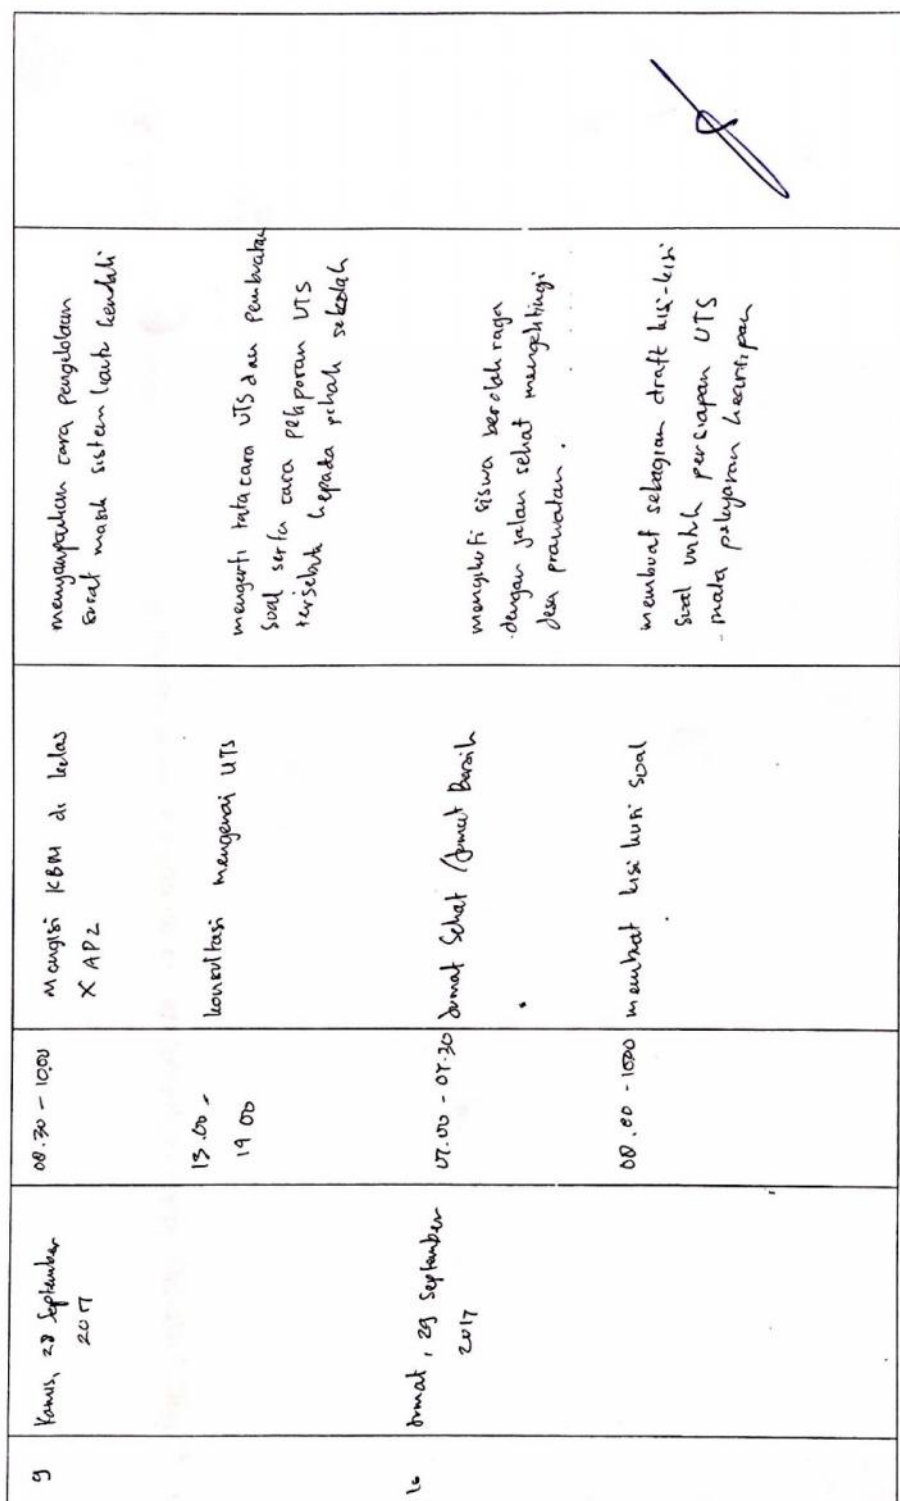 9
Kamis, 28 September
2017
08.30 - 10.00
Mengisi KBM di kelas
X AP2
menyampaikan cara pengelolaan
surat masuk sistem kartu kendali
13.00 -
14 00
konsultasi mengenai UTS
mengerti tata cara UTS dan pembuatan
soal serta cara pelaporan UTS
tersebut kepada pihak sekolah
Jumat, 29 September
2017
07.00 - 07.30
Jumat Sehat / Jumat Bersih
mengikuti siswa berolah raga
dengan jalan sehat mengelilingi
desa prawatan.
08.00 - 10.00
membuat kisi kisi soal
membuat sebagian draft kisi-kisi
soal untuk persiapan UTS
mata pelajaran kearsipan